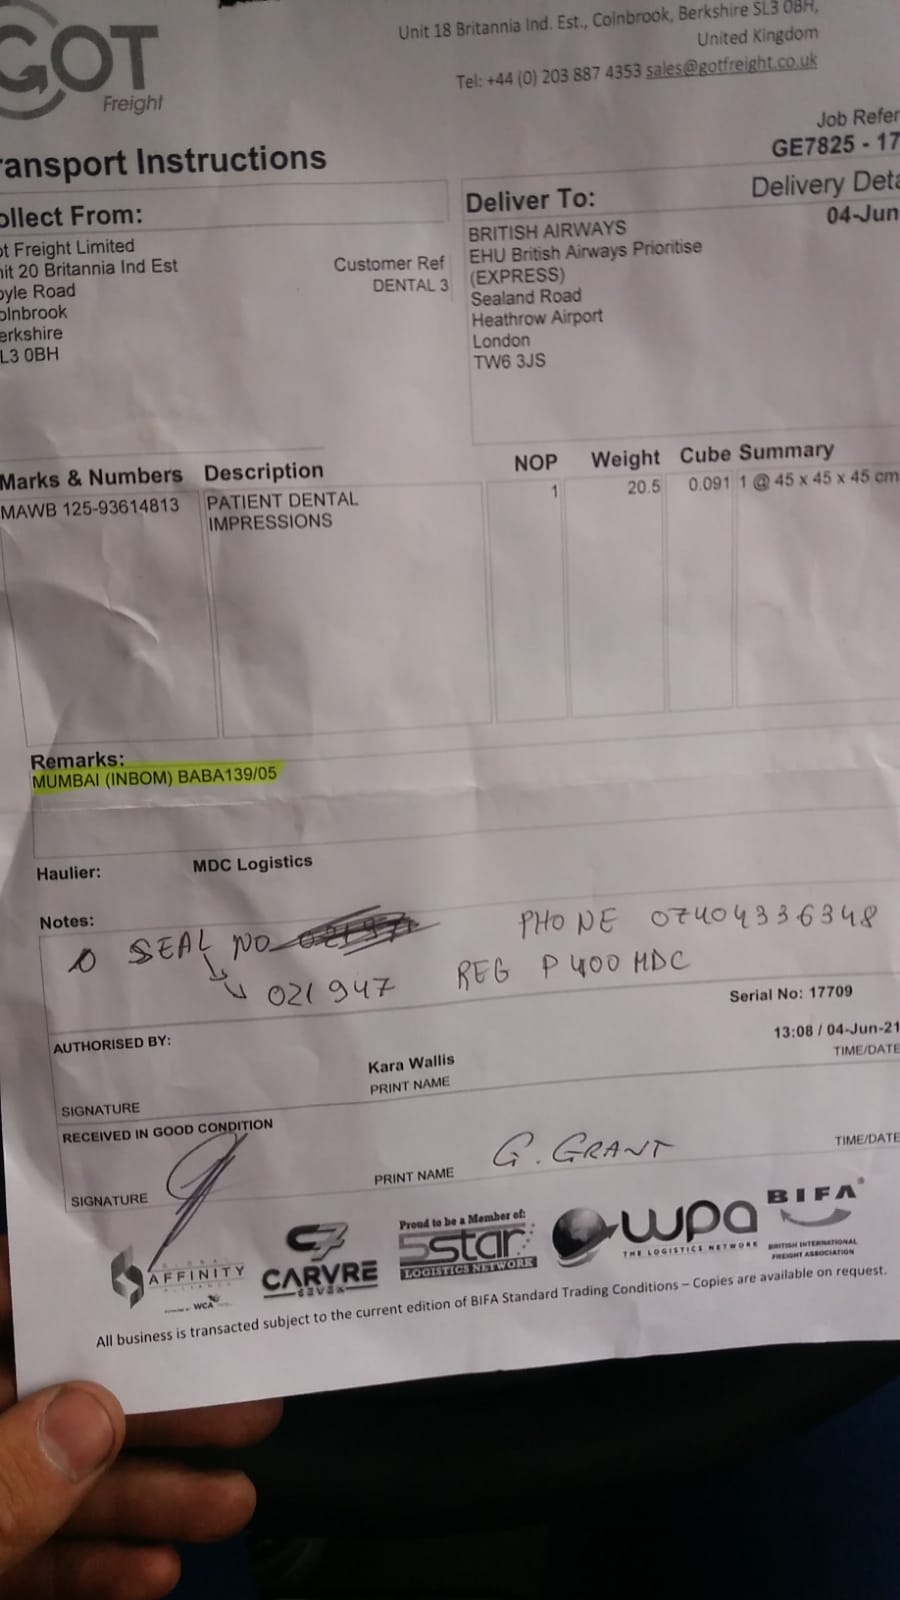 GOT
Freight
Unit 18 Britannia Ind. Est., Colnbrook, Berkshire SL3 0BH,
United Kingdom
Tel: +44 (0) 203 887 4353 sales@gotfreight.co.uk
ransport Instructions
Job Refer
GE7825 - 17
ollect From:
ot Freight Limited
nit 20 Britannia Ind Est
oyle Road
olnbrook
erkshire
L3 0BH
Customer Ref
DENTAL 3
Deliver To:
BRITISH AIRWAYS
EHU British Airways Prioritise
(EXPRESS)
Sealand Road
Heathrow Airport
London
TW6 3JS
Delivery Deta
04-Jun
Marks & Numbers Description NOP Weight Cube Summary
MAWB 125-93614813 PATIENT DENTAL 1 20.5 0.091 1 @ 45 x 45 x 45 cm
IMPRESSIONS
Remarks:
MUMBAI (INBOM) BABA139/05
Haulier: MDC Logistics
Notes:
SEAL NO PHONE 07404336348
021947 REG P400 MDC
Serial No: 17709
AUTHORISED BY:
Kara Wallis 13:08 / 04-Jun-21
SIGNATURE PRINT NAME TIME/DATE
RECEIVED IN GOOD CONDITION
G. GRANT
SIGNATURE PRINT NAME TIME/DATE
GLOBAL
AFFINITY
ALLIANCE
WCA
C7
CARVRE
SEVEN
Proud to be a Member of:
5star
LOGISTICS NETWORK
wpa
THE LOGISTICS NETWORK
BIFA
BRITISH INTERNATIONAL
FREIGHT ASSOCIATION
All business is transacted subject to the current edition of BIFA Standard Trading Conditions – Copies are available on request.